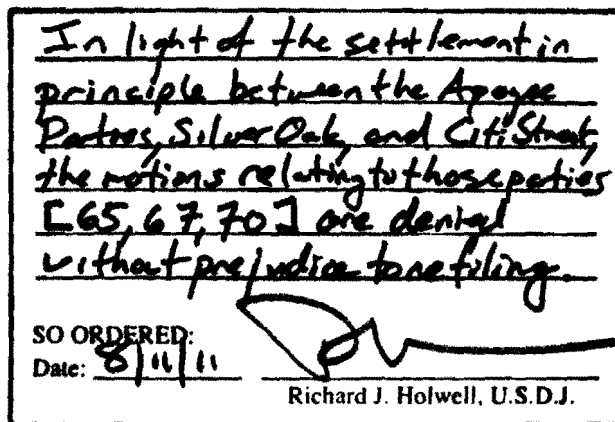 In light of the settlement in
principle between the Apogee
Parties, Silver Oak, and CitiStreet,
the motions relating to those parties
[65, 67, 70] are denied
without prejudice to refiling.
SO ORDERED:
Date: 8/11/11
Richard J. Holwell, U.S.D.J.